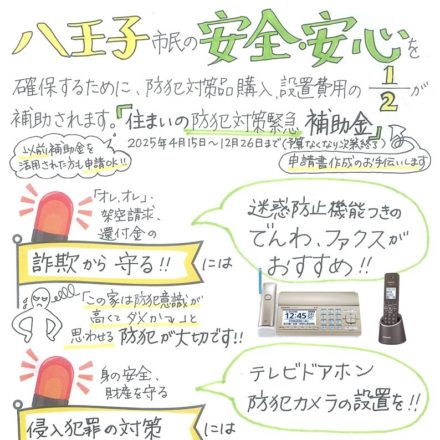 八王子市民の安全・安心を
確保するために、防犯対策品購入、設置費用の1/2が
補助されます。『住まいの防犯対策緊急補助金』
2025年4月15日〜12月26日まで(予算なくなり次第終了)
以前、補助金を
活用された方も申請OK!!
申請書作成のお手伝いします
「オレオレ」、
架空請求、
還付金の
詐欺から守る!!には
迷惑防止機能つきの
でんわ、ファクスが
おすすめ!!
12:45
「この家は防犯意識が
高くてダメか〜」と
思わせる防犯が大切です!!
身の安全、
財産を守る
侵入犯罪の対策には
テレビドアホン
防犯カメラの設置を!!